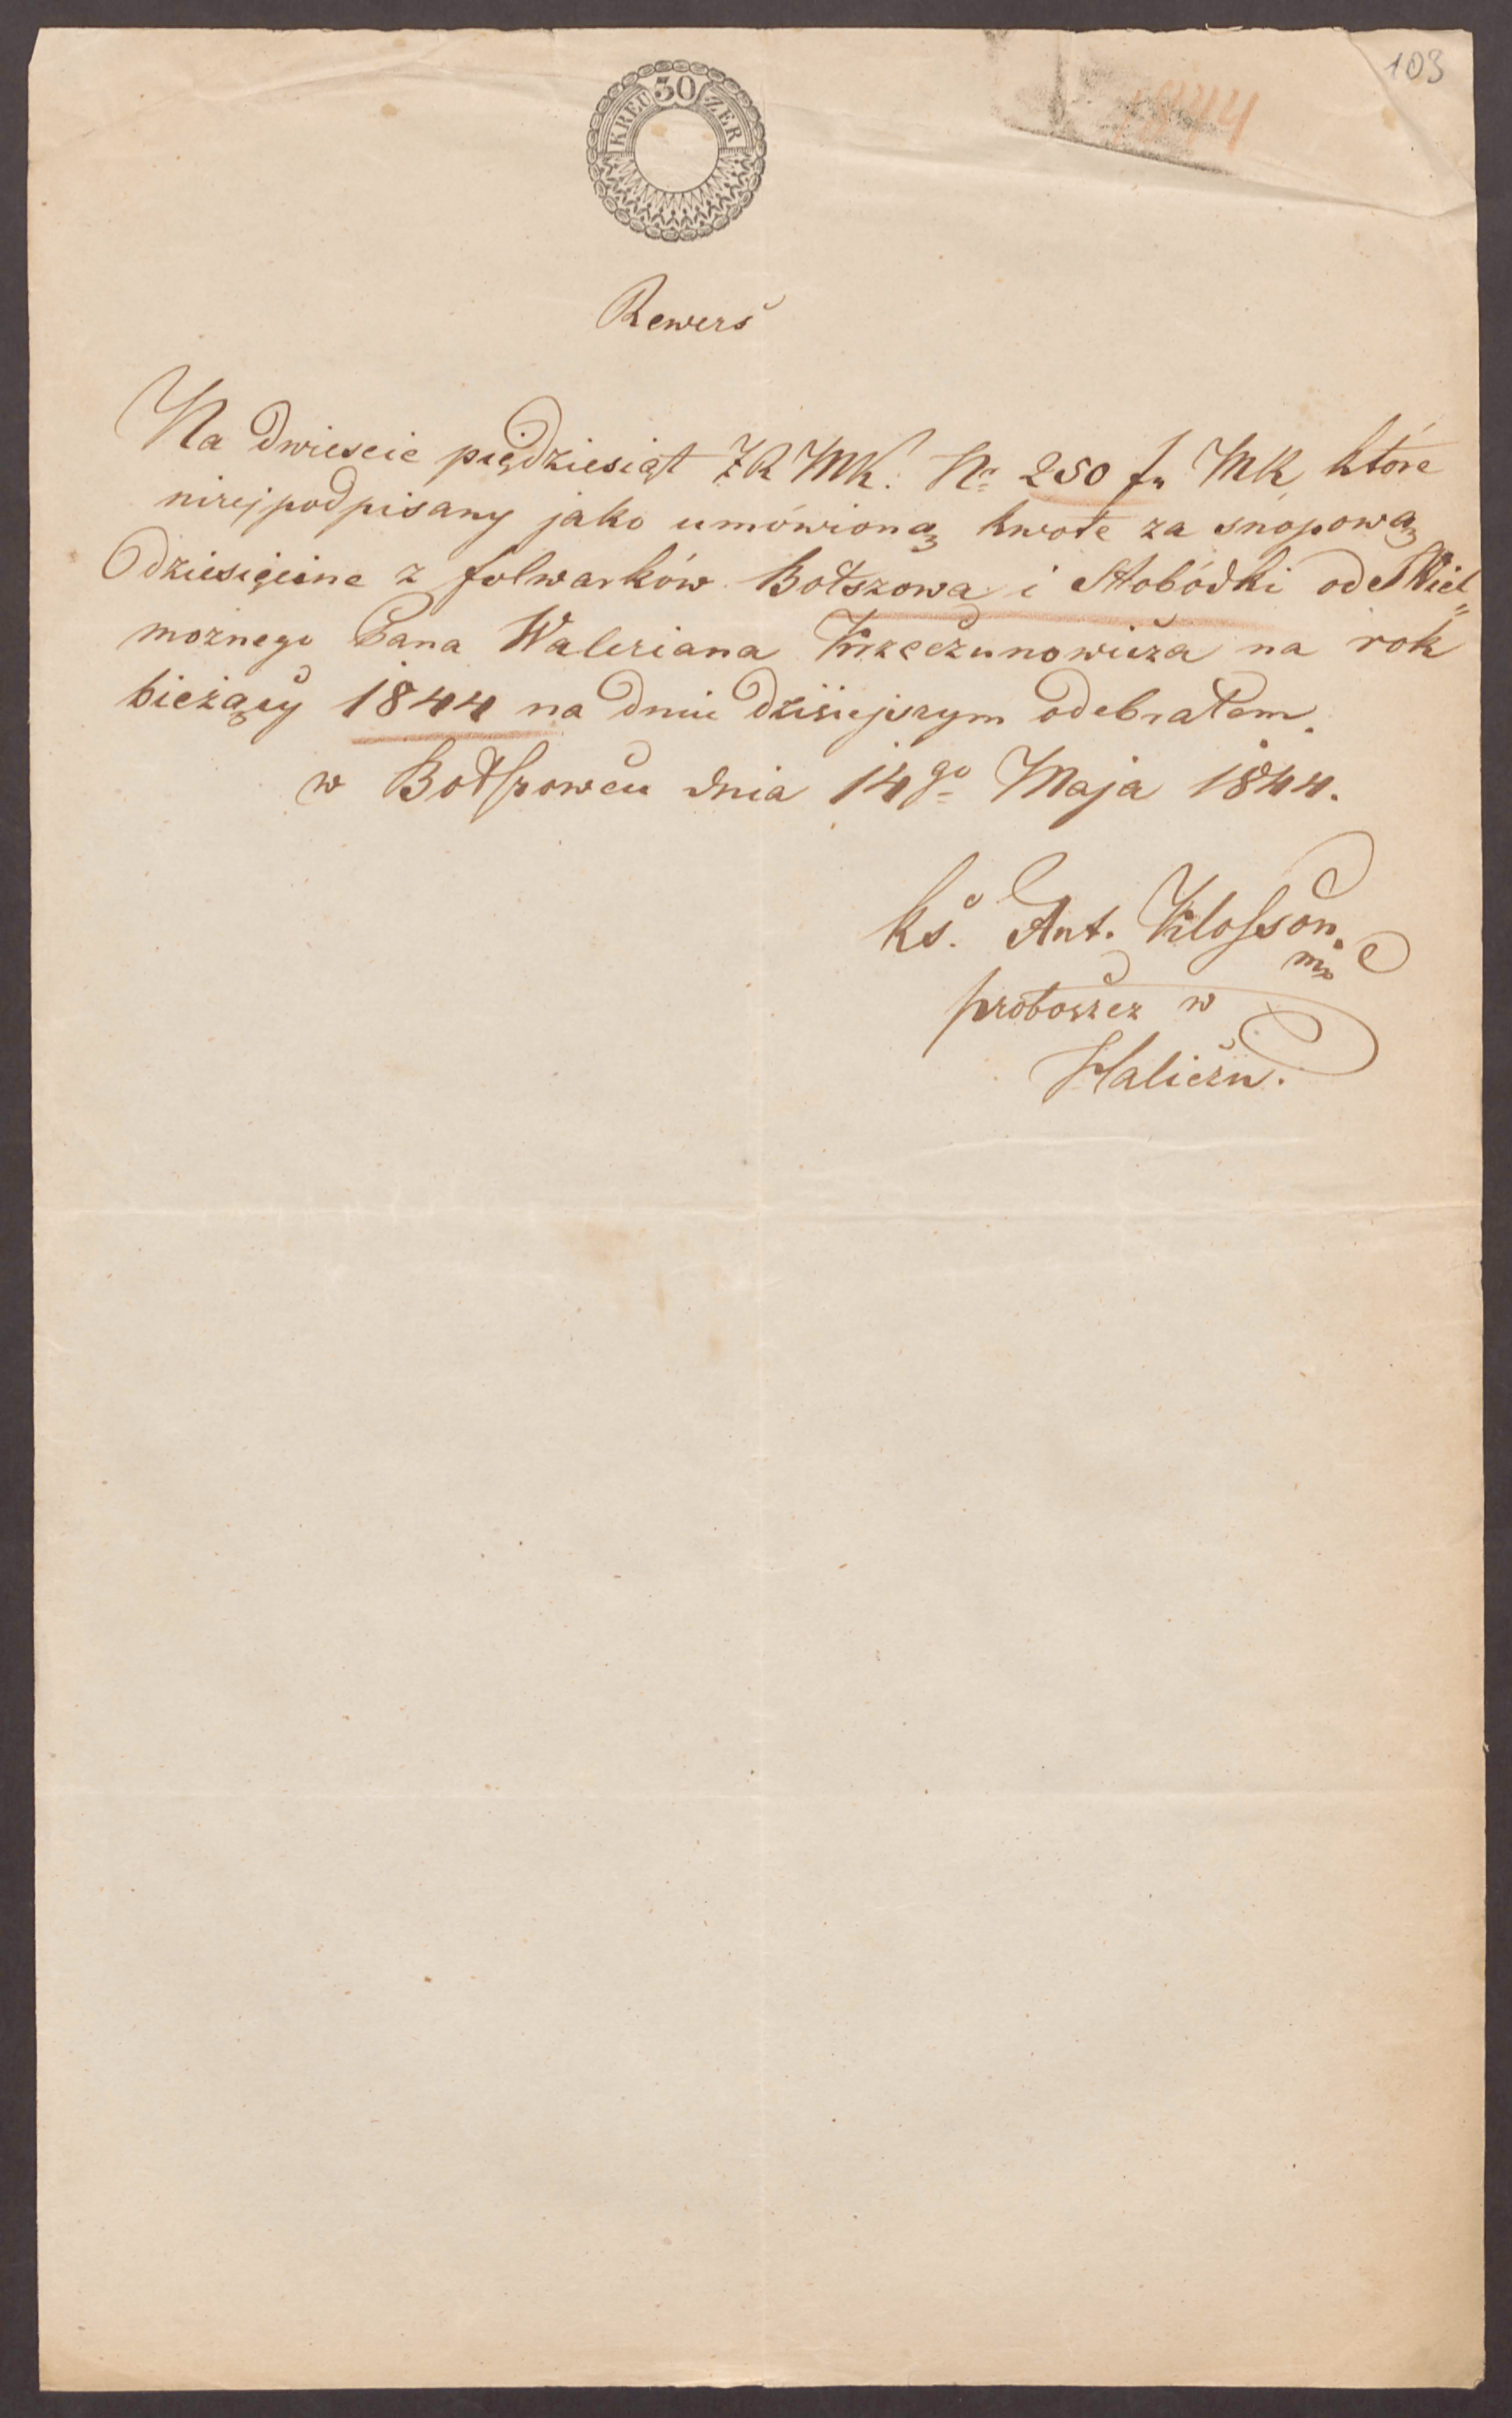 103
1844
30
KREUZER
Rewers
Na dwieście piędziesiąt ZR MK. Nro 250 fr MK, które
niżejpodpisany jako umówioną kwotę za snopową
dziesięcinę z folwarków Bołszowa i Słobódki od Wiel=
możnego Pana Waleriana Krzeczunowicza na rok
bieżący 1844 na dniu dzisiejszym odebrałem.
w Bołszowcu dnia 14go Maja 1844.
ks. Ant. Klosson
mp
proboszcz w
Haliczu.